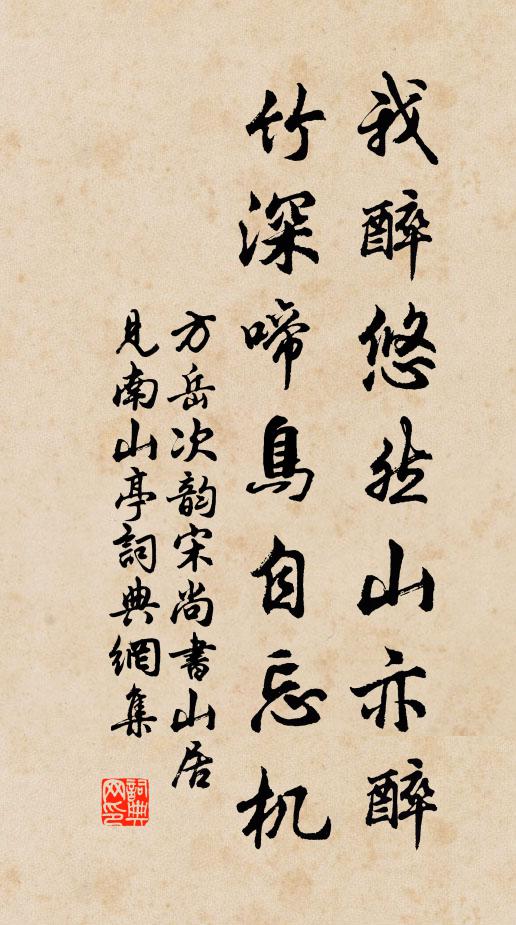 我醉悠然山亦醉
竹深啼鳥自忘机
方岳次韵宋尚書山居
見南山亭詞典網集
詞典
网印